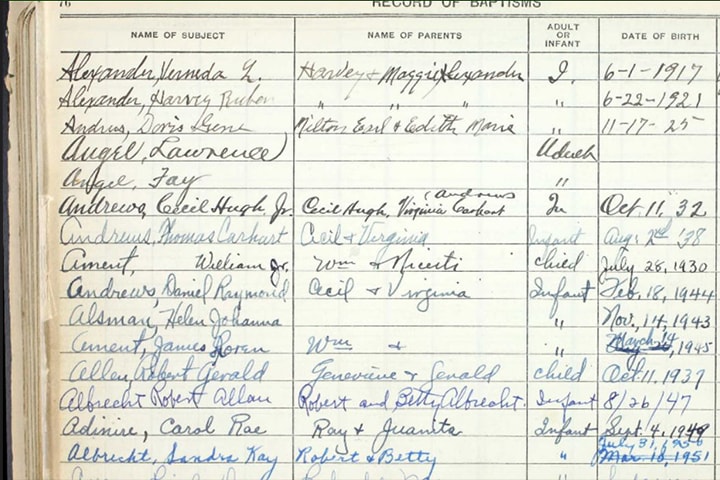 76 RECORD OF BAPTISMS
NAME OF SUBJECT NAME OF PARENTS ADULT OR INFANT DATE OF BIRTH
Alexander, Verneda L. Harvey & Maggie Alexander I. 6-1-1917
Alexander, Harvey Ruben " " " " 6-22-1921
Andrus, Doris Gene Milton Earl & Edith Marie " 11-17-25
Angel, Lawrence Adult
Angel, Fay "
Andrews, Cecil Hugh, Jr. Cecil Hugh, Virginia Carhart (Andrews In Oct. 11, 32
Andrews, Thomas Carhart Cecil & Virginia Infant Aug. 2nd '38
Ament, William Jr. Wm & child July 28, 1930
Andrews, Daniel Raymond Cecil & Virginia Infant Feb. 18, 1944
Alsman, Helen Johanna " Nov. 14, 1943
Ament, James Loren Wm & " March 14 1945
Allen, Robert Gerald Genevieve & Gerald child Oct 11. 1937
Albrecht Robert Allan Robert and Betty Albrecht. Infant 8/26/47
Adinire, Carol Rae Ray & Juanita Infant Sept. 4, 1949
Albrecht, Sandra Kay Robert & Betty " July 31, 1950 Mar. 18, 1951